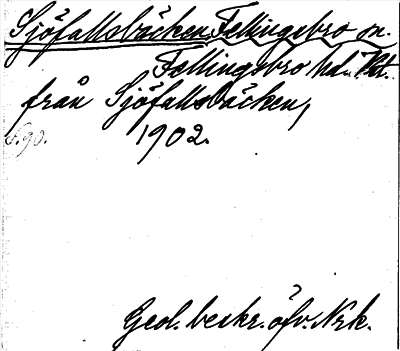 Sjöfallsbäcken Fellingsbro sn.
Fellingsbro hd.
från Sjöfallsbäcken,
S. 90.
1902.
Geol. beskr. öfv. Nrk.